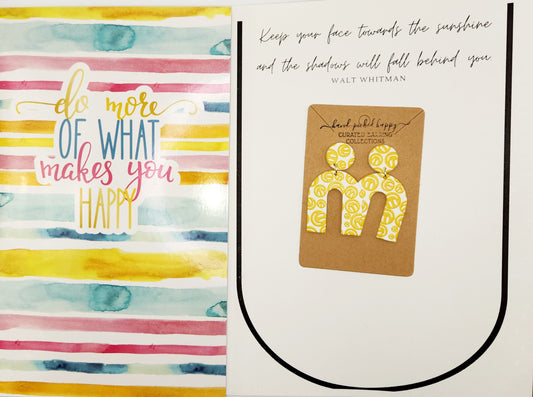 do more
OF WHAT
makes you
HAPPY
Keep your face towards the sunshine
and the shadows will fall behind you
WALT WHITMAN
hand picked happy
CURATED EARRING
COLLECTIONS